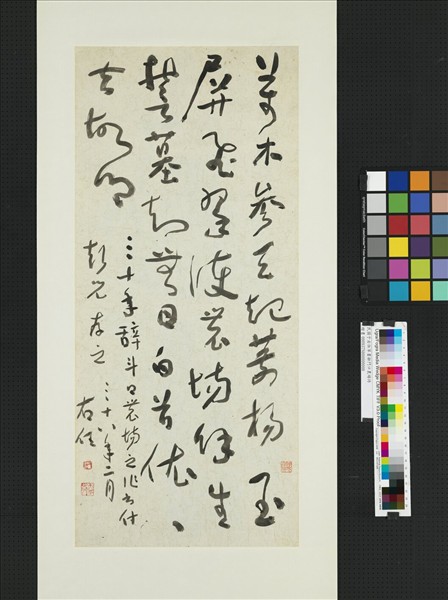 萬木參天起楊玉
屏飛翠護農場餘生
誓墓知無日白首依々
去故鄉
三十年辭斗口農場之作書付
彭兄存之 三十八年二月
右任